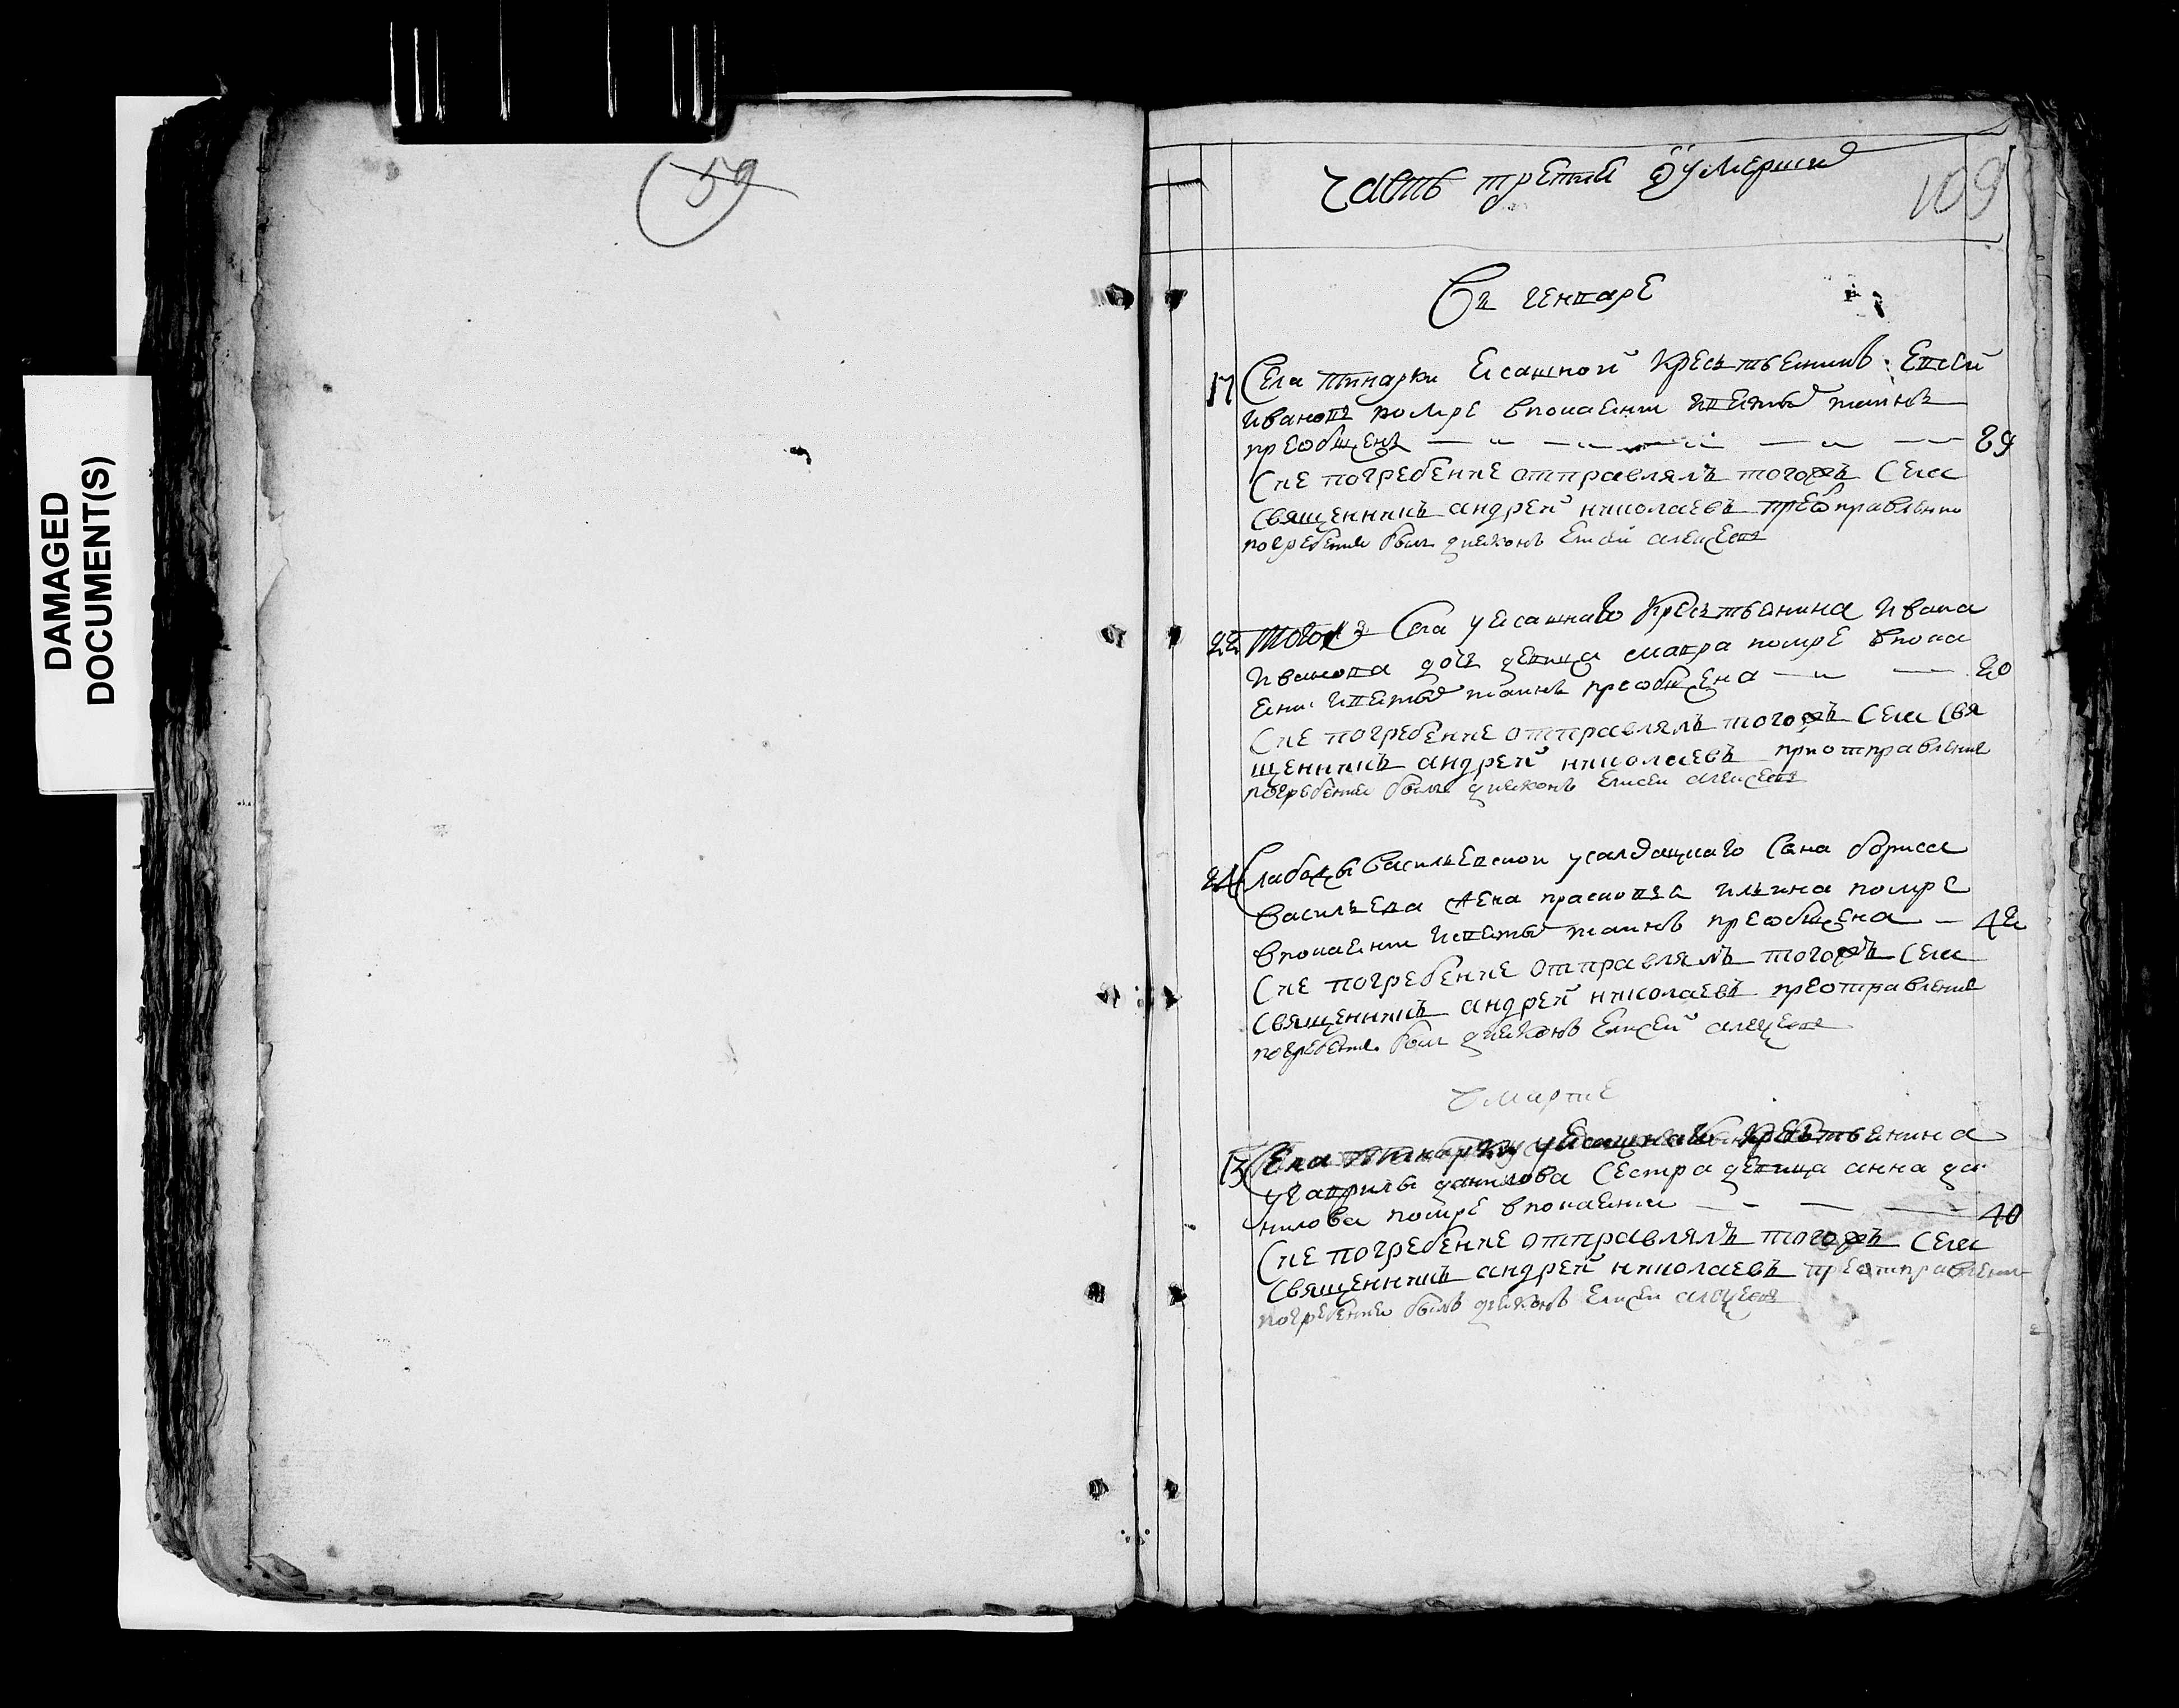 DAMAGED
DOCUMENT(S)
59
часть третия ѿ умерши
109
Въ генваре
17 Села Тинарки Ясашной Крестьенинъ Евсей
Ивановъ помре впокаении исвятыхъ таинъ
преобщенъ 89
Сие погребение отправлялъ тогожъ Села
священникъ андрей николаевъ преѿправлении
погребении былъ дияконъ Елисей алексеевъ
22 Тогожъ Села у Ясашнаго Крестьянина Ивана
Иванова дочь девица мавра помре впока
ении исвятыхъ таинъ преобщена 20
Сие погребение отправлялъ тогожъ Села свя
щенникъ андрей николаевъ приотправлении
погребении былъ дияконъ Елисей алексеевъ
24 Слабоды Васильевской усалдацкаго Сына бориса
васильева жена прасковья ильина помре
впокаении исвятыхъ таинъ преобщена 42
Сие погребение отправлялъ тогожъ Села
священникъ андрей николаевъ преотправлении
погребении былъ дияконъ Елисей алексеевъ
Вмарте
13 Села Тинарки уЯсашнаго Крестьянина
угаврилы данилова Сестра девица анна да
нилова помре впокаении 40
Сие погребение отправлялъ тогожъ Села
священникъ андрей николаевъ преотправлении
погребении былъ дияконъ Елисей алексеевъ